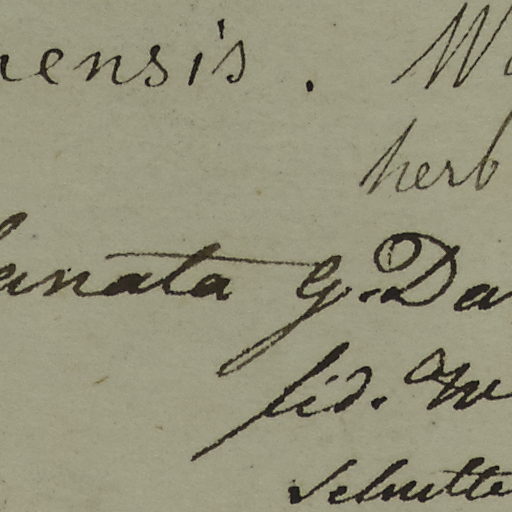 nensis. W
herb
lanata G. Da
fid. 
Schutte